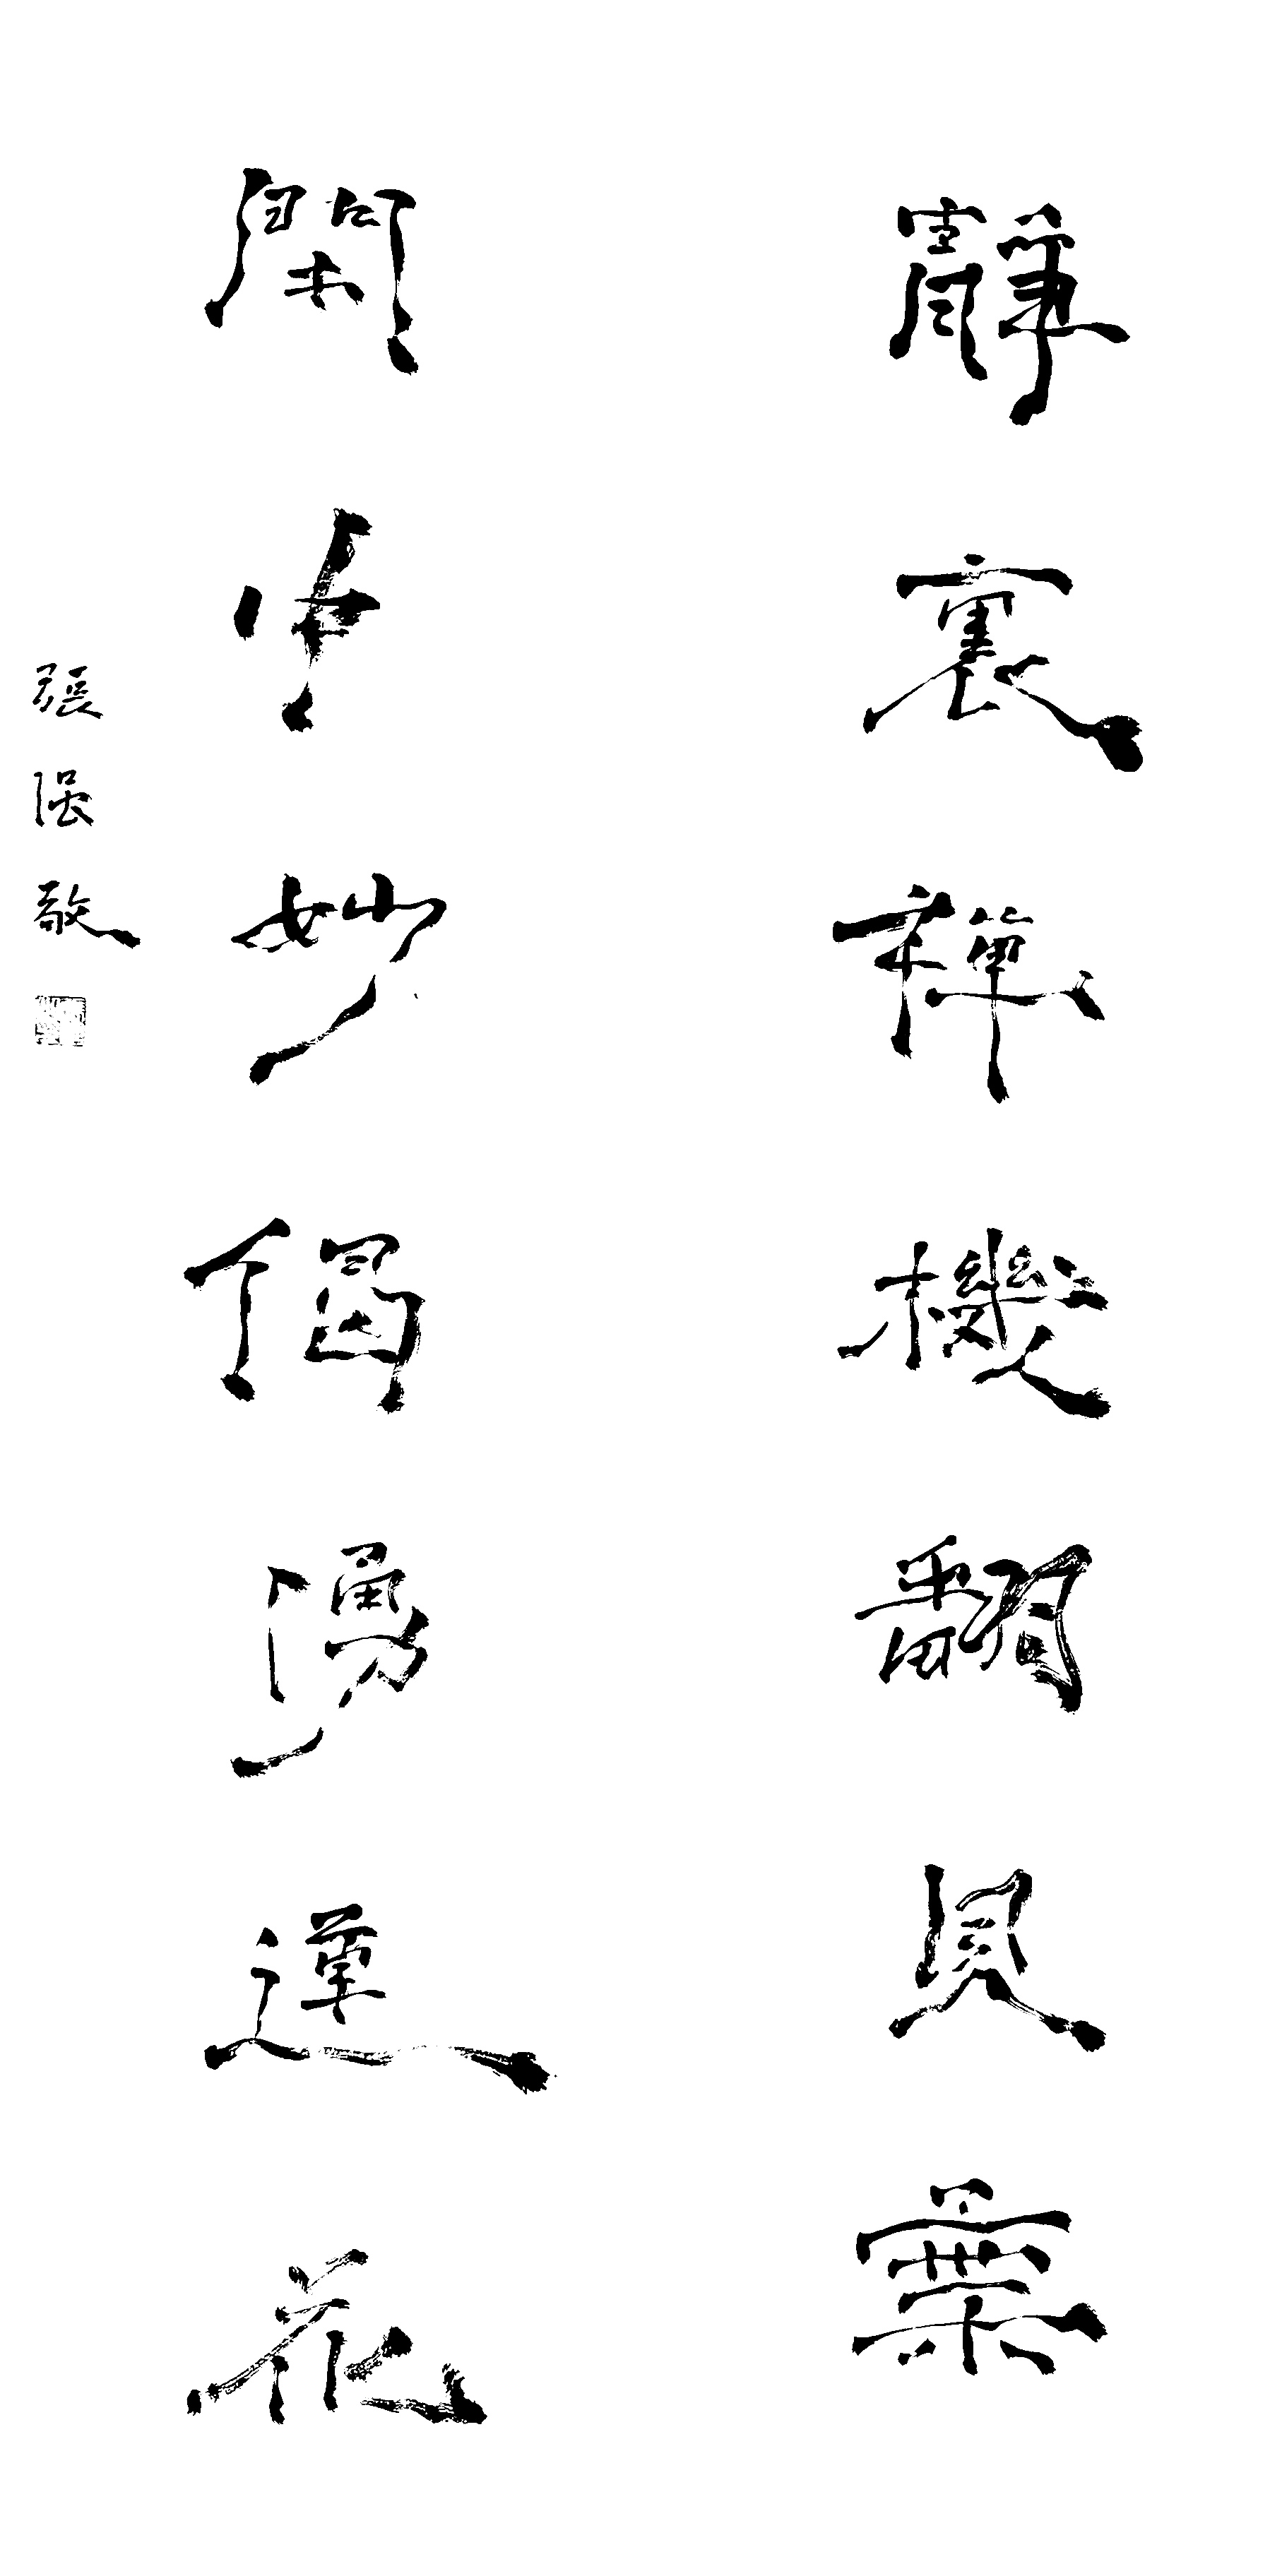 靜裏禪機翻貝葉
閑中妙偈湧蓮花
張強敬